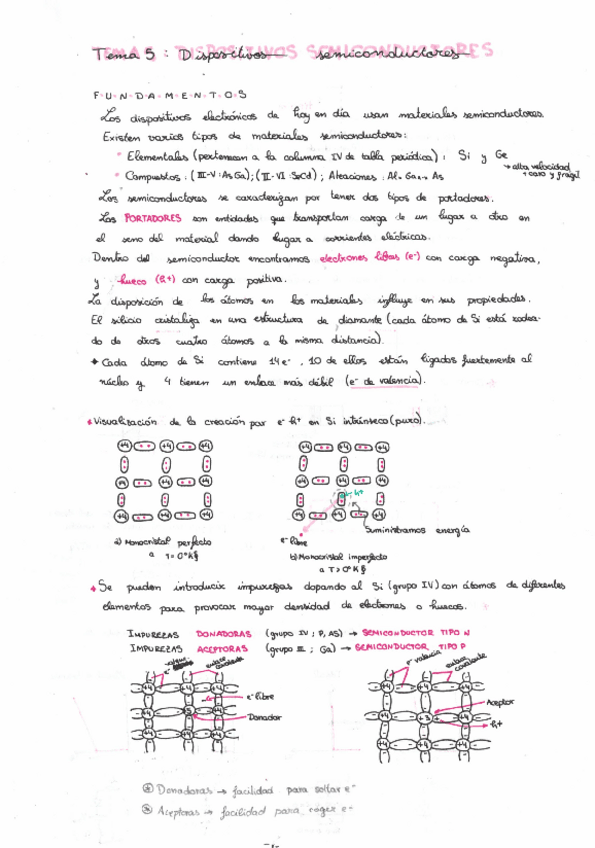 Tema 5: Dispositivos semiconductores
FUNDAMENTOS
Los dispositivos electrónicos de hoy en día usan materiales semiconductores.
Existen varios tipos de materiales semiconductores:
* Elementales (pertenecen a la columna IV de tabla periódica): Si y Ge
→ alta velocidad
+ caro y frágil
* Compuestos: (III-V: AsGa); (II-VI: SeCd); Aleaciones: Al Ga As
Los semiconductores se caracterizan por tener dos tipos de portadores.
Los PORTADORES son entidades que transportan carga de un lugar a otro en
el seno del material dando lugar a corrientes eléctricas.
Dentro del semiconductor encontramos electrones libres (e-) con carga negativa,
y hueco (h+) con carga positiva.
La disposición de los átomos en los materiales influye en sus propiedades.
El silicio cristaliza en una estructura de diamante (cada átomo de Si está rodea-
do de otros cuatro átomos a la misma distancia).
+ Cada átomo de Si contiene 14 e-, 10 de ellos están ligados fuertemente al
núcleo y 4 tienen un enlace más débil (e- de valencia).
* Visualización de la creación par e- h+ en Si intrínseco (puro).
+4 +4 +4 +4 +4 +4
+4 +4 +4 +4 +4 +4
h+
+4 +4 +4 +4 +4 +4
Suministramos energía
e- libre
a) Monocristal perfecto
a T=0°K
b) Monocristal imperfecto
a T>0°K
+ Se pueden introducir impurezas dopando al Si (grupo IV) con átomos de diferentes
elementos para provocar mayor densidad de electrones o huecos.
IMPUREZAS DONADORAS (grupo IV; P, AS) → SEMICONDUCTOR TIPO N
IMPUREZAS ACEPTORAS (grupo III; Ga) → SEMICONDUCTOR TIPO P
enlace covalente
e- valencia
enlace covalente
+4 +4 +4 +4 +4 +4
e- libre
Aceptor
+4 +5 +4 +4 +3 +4
Donador
h+
+4 +4 +4 +4 +4 +4
* Donadoras → facilidad para soltar e-
* Aceptoras → facilidad para coger e-
-1-